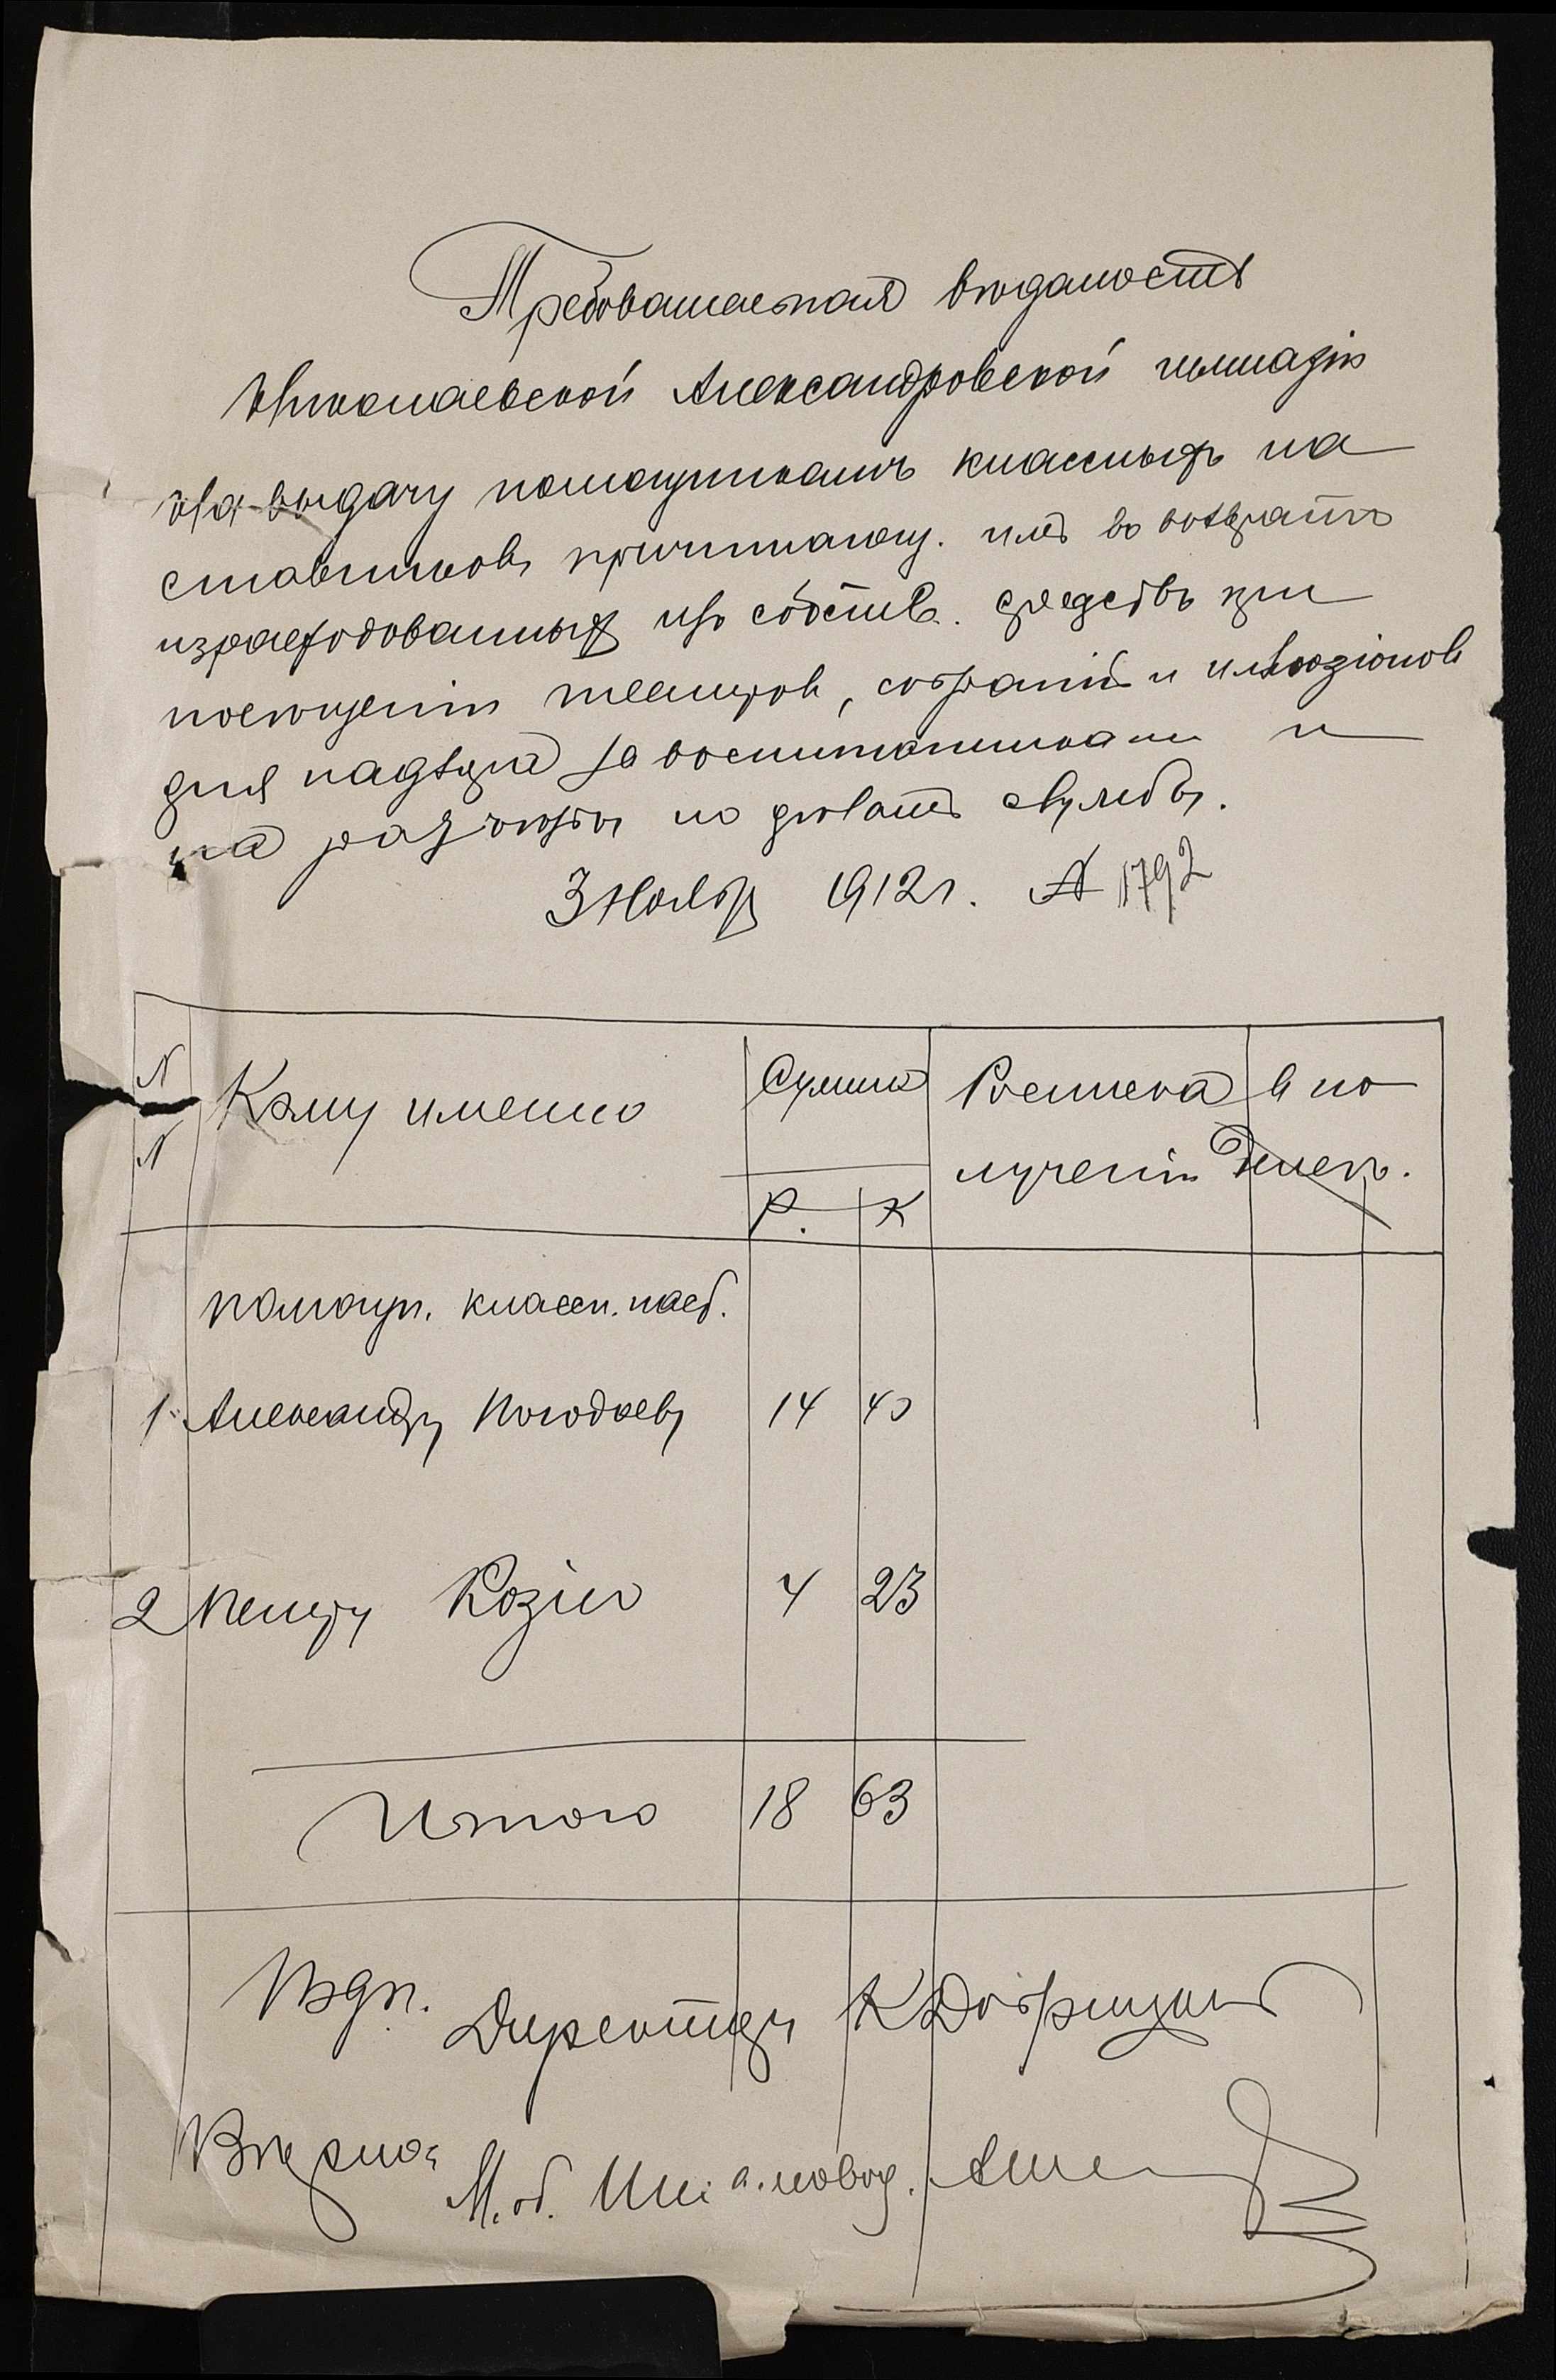 Требовательная вѣдомость
Николаевской Александровской гимназіи
На выдачу помощникамъ классныхъ на
ставниковъ причитающ. имъ въ возвратъ
израсходованныхъ изъ собств. средствъ при
посѣщеніи театровъ, собраній и иллюзіоновъ
для надзора за воспитанниками и
на разъѣзды по дѣламъ службы.
3 Ноября 1912 г. № 1792
N N Кому именно Сумма Росписка в по
лученіи денег.
Р. К
помощн. классн. наст.
1. Александру Погодаеву 14 40
2 Петру Козію 4 23
Итого 18 63
Подп. Директоръ К
Вѣрно: